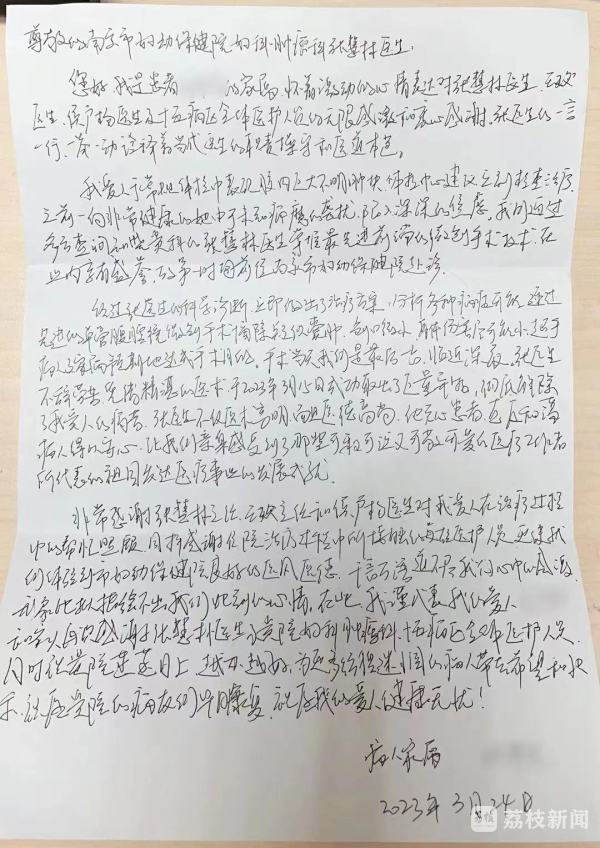 尊敬的南京市妇幼保健院妇科肿瘤科张慧林医生:
您好!我是患者 的家属,怀着激动的心情表达对张慧林医生、
医生、 医生及十五病区全体医护人员的无限感激和衷心感谢,张医生的一言
一行、一举一动诠释着当代医生的职责操守和医道本色。
我爱人于常规体检中发现腹内巨大不明肿块,体检中心建议立刻检查治疗,
之前一向非常健康的她由于未知病魔的袭扰,陷入深深的焦虑,我们通过
多方查询 资料知张慧林医生掌握最先进前沿的微创手术技术,在
业内享有盛誉,故第一时间前往南京市妇幼保健院处诊。
经过张医生的科学诊断,立即做出了治疗方案,分析各种病症可能,通过
先进的单管腹腔镜微创手术摘除卵巢囊肿,创口微小,身体伤害尽可能小,超乎
病人与家属预期地达成手术目的。手术当天我们是最后一台,临近深夜,张医生
不辞劳苦凭借精湛的医术于2023年3月 日成功取出了巨量异物,彻底解除
了我爱人的病苦。张医生不仅医术高明,而且医德高尚,他关心患者,
病人得以安心,让我们亲身感受到了那些可亲可近又可敬可爱的医疗工作者
所代表的祖国发达医疗事业的发展成就。
非常感谢张慧林主任、 主任和 医生对我爱人在治疗过程
中的帮忙照顾,同时感谢住院治疗过程中所接触的每位医护人员,更使我
们体验到市妇幼保健院良好的医风医德,千言万语道不尽我们心中的感激,
描绘不出我们此刻的心情,在此,我谨代表我的爱人
再次感谢张慧林医生及贵院妇科肿瘤科,十五病区全体医护人员,
同时祝贵院蒸蒸日上,越办越好,为更多 的病人带去希望和快
乐,祝愿贵院的病友们早日康复,祝愿我的爱人健康无忧!
病人家属
2023年3月24日
荔枝新闻